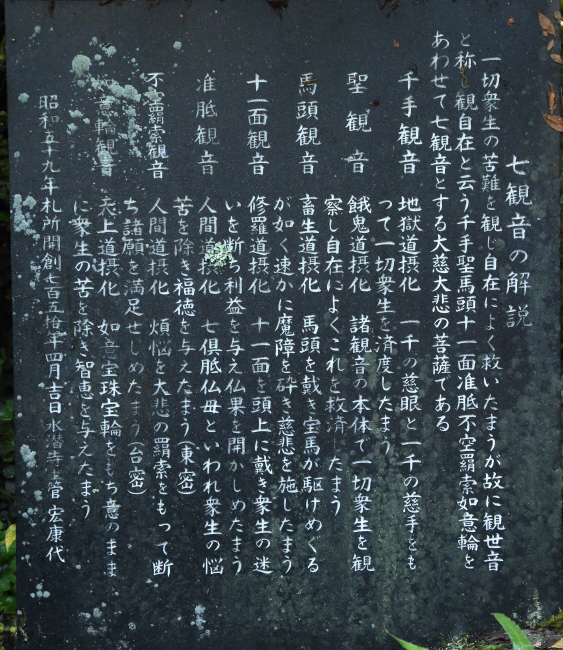 七観音の解説
一切衆生の苦難を観じ自在によく救いたまうが故に観世音
と称し観自在と云う千手聖馬頭十一面准胝不空羂索如意輪を
あわせて七観音とする大慈大悲の菩薩である
千手観音 地獄道摂化 一千の慈眼と一千の慈手をも
って一切衆生を済度したまう
聖観音 餓鬼道摂化 諸観音の本体で一切衆生を観
察し自在によくこれを救済したまう
馬頭観音 畜生道摂化 馬頭を戴き宝馬が駆けめぐる
が如く速かに魔障を砕き慈悲を施したまう
十一面観音 修羅道摂化 十一面を頭上に戴き衆生の迷
いを断ち利益を与え仏果を開かしめたまう
准胝観音 人間道摂化 七倶胝仏母といわれ衆生の悩
苦を除き福徳を与えたまう(東密)
不空羂索観音 人間道摂化 煩悩を大悲の羂索をもって断
ち諸願を満足せしめたまう(台密)
如意輪観音 天上道摂化 如意宝珠宝輪をもち意のまま
に衆生の苦を除き智恵を与えたまう
昭和五十九年札所開創七百五拾年四月吉日水潜寺 管 宏康代